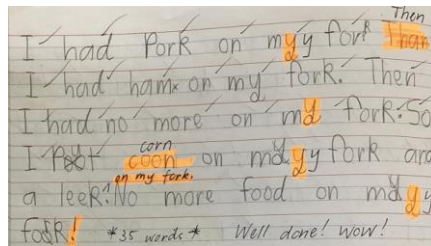 Then
I had Pork on my y fork. Than
I had ham on my fork. Then
I had no more on my fork. So
I Put coon on my y fork and
corn
on my fork.
a leek. No more food on my y
fork!
*35 words* Well done! Wow!